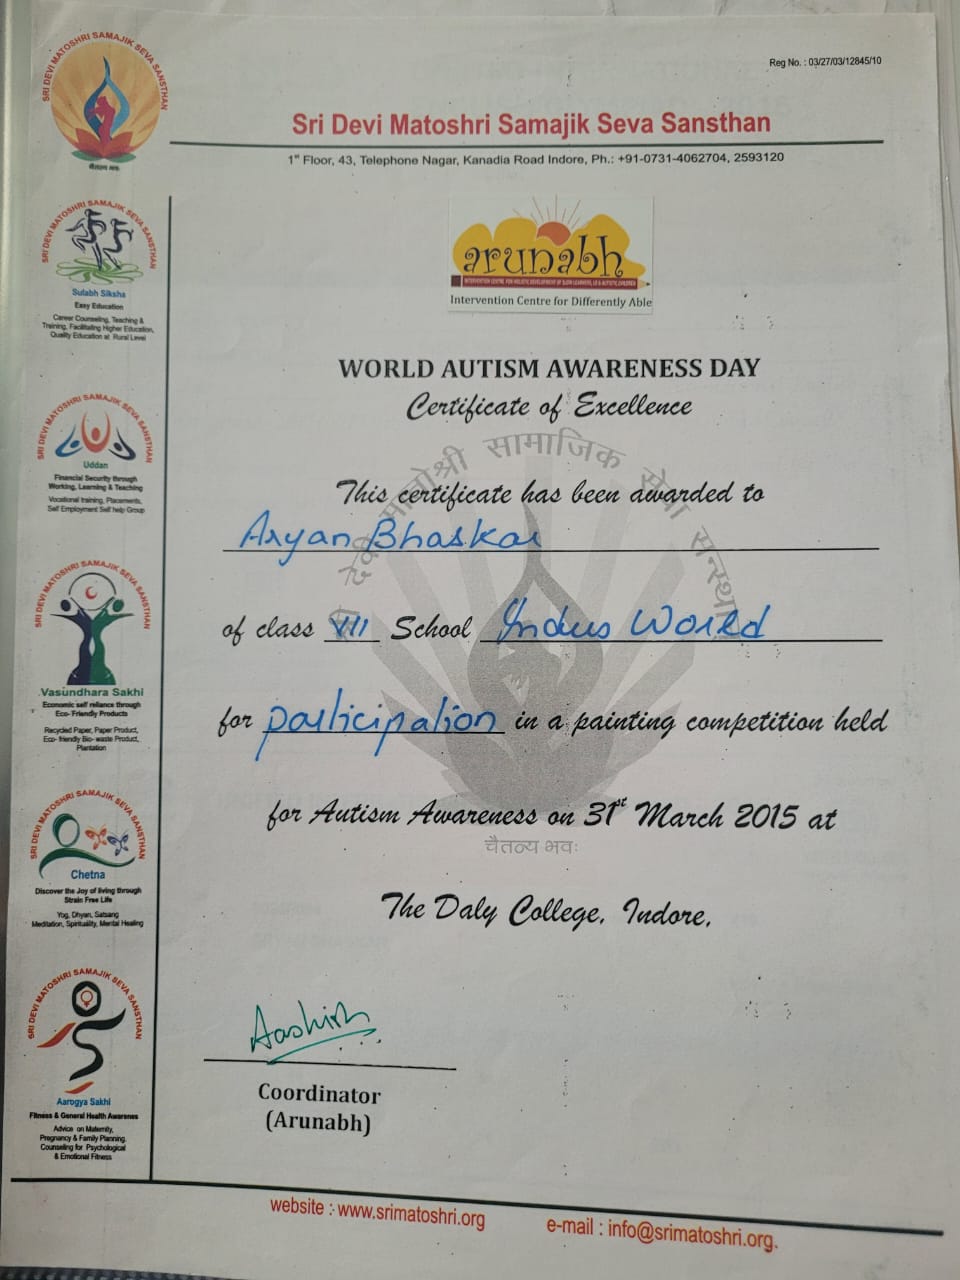 Reg No. : 03/27/03/12845/10
Sri Devi Matoshri Samajik Seva Sansthan
1st Floor, 43, Telephone Nagar, Kanadia Road Indore, Ph.: +91-0731-4062704, 2593120
SRI DEVI MATOSHRI SAMAJIK SEVA SANSTHAN
चैतन्य भवः
SRI DEVI MATOSHRI SAMAJIK SEVA SANSTHAN
Sulabh Siksha
Easy Education
Career Counseling, Teaching &
Training, Facilitating Higher Education,
Quality Education at Rural Level
SRI DEVI MATOSHRI SAMAJIK SEVA SANSTHAN
Uddan
Financial Security through
Working, Learning & Teaching
Vocational training, Placements,
Self Employment Self help Group
SRI DEVI MATOSHRI SAMAJIK SEVA SANSTHAN
Vasundhara Sakhi
Economic self reliance through
Eco- Friendly Products
Recycled Paper, Paper Product,
Eco- friendly Bio- waste Product,
Plantation
SRI DEVI MATOSHRI SAMAJIK SEVA SANSTHAN
Chetna
Discover the Joy of living through
Strain Free Life
Yog, Dhyan, Satsang
Meditation, Spirituality, Mental Healing
SRI DEVI MATOSHRI SAMAJIK SEVA SANSTHAN
Aarogya Sakhi
Fitness & General Health Awarenes
Advice on Maternity,
Pregnancy & Family Planning.
Counseling for Psychological
& Emotional Fitness
arunabh
INTERVENTION CENTRE FOR HOLISTIC DEVELOPMENT OF SLOW LEARNERS, LD & AUTISTIC CHILDREN
Intervention Centre for Differently Able
WORLD AUTISM AWARENESS DAY
Certificate of Excellence
श्री देवी मातोश्री सामाजिक सेवा सन्स्थान
This certificate has been awarded to
Aryan Bhaskar
of class VII School Indus World
for participation in a painting competition held
for Autism Awareness on 31st March 2015 at
चैतन्य भवः
The Daly College, Indore.
Aashish
Coordinator
(Arunabh)
website : www.srimatoshri.org
e-mail : info@srimatoshri.org.